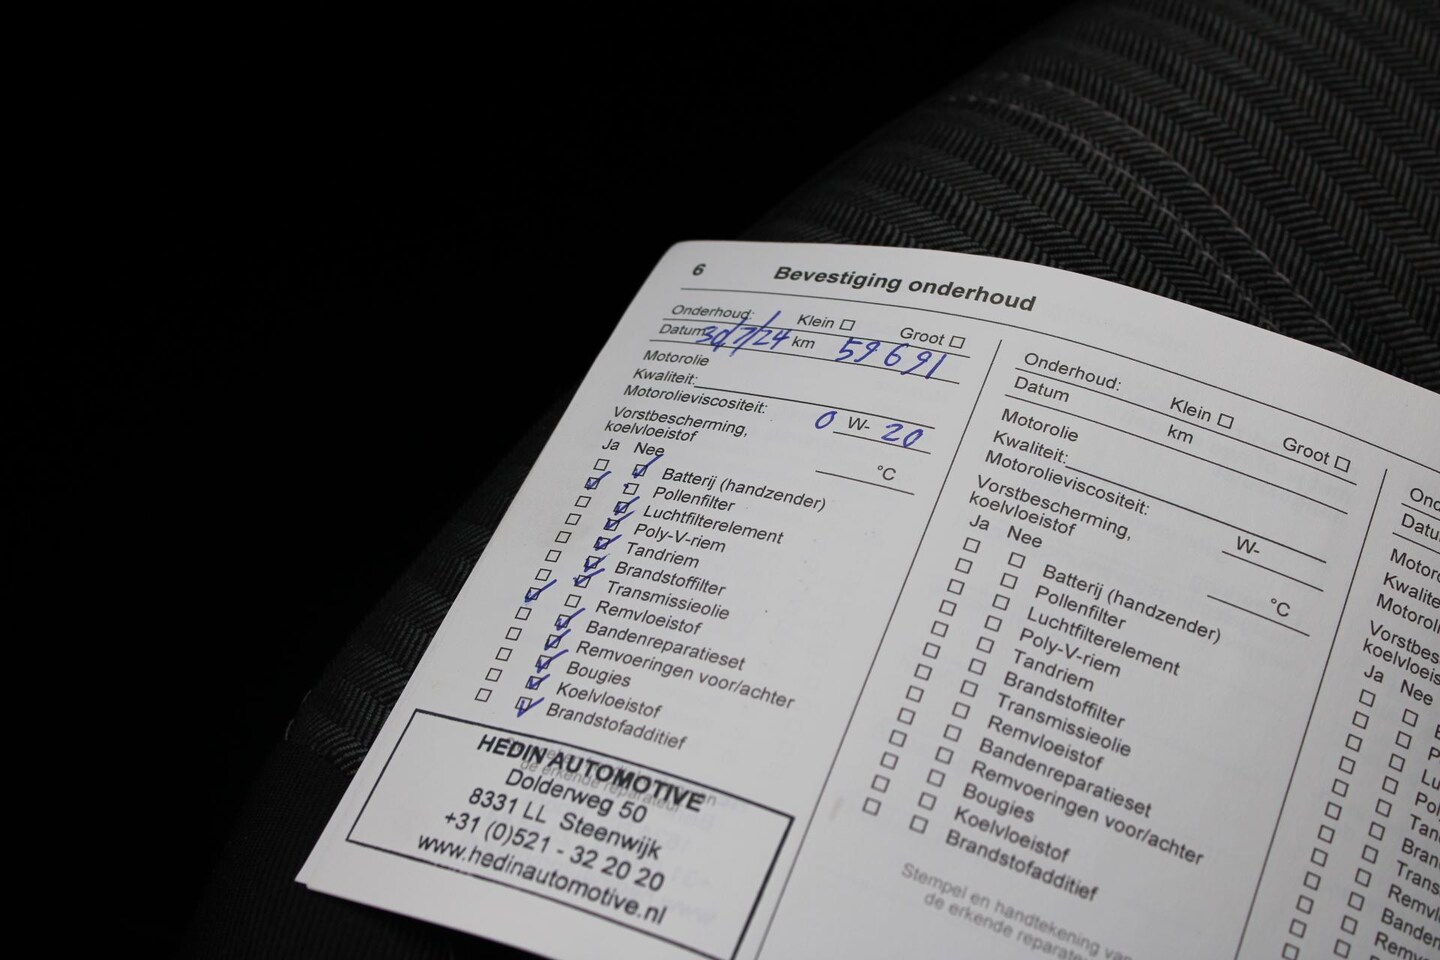 6 Bevestiging onderhoud
Onderhoud: Klein Groot
Datum 30/7/24 km 59691
Motorolie
Kwaliteit:
Motorolieviscositeit: 0 W- 20
Vorstbescherming,
koelvloeistof °C
Ja Nee
Batterij (handzender)
Pollenfilter
Luchtfilterelement
Poly-V-riem
Tandriem
Brandstoffilter
Transmissieolie
Remvloeistof
Bandenreparatieset
Remvoeringen voor/achter
Bougies
Koelvloeistof
Brandstofadditief
de erkende reparateur
HEDIN AUTOMOTIVE
Dolderweg 50
8331 LL Steenwijk
+31 (0)521 - 32 20 20
www.hedinautomotive.nl
Onderhoud: Klein Groot
Datum km
Motorolie
Kwaliteit:
Motorolieviscositeit: W-
Vorstbescherming,
koelvloeistof °C
Ja Nee
Batterij (handzender)
Pollenfilter
Luchtfilterelement
Poly-V-riem
Tandriem
Brandstoffilter
Transmissieolie
Remvloeistof
Bandenreparatieset
Remvoeringen voor/achter
Bougies
Koelvloeistof
Brandstofadditief
Stempel en handtekening van
de erkende reparate
Ond
Datu
Motoro
Kwalite
Motorol
Vorstbes
koelvloeis
Ja Nee
B
P
Lu
Poly
Tan
Bran
Trans
Remvl
Banden
Remvo